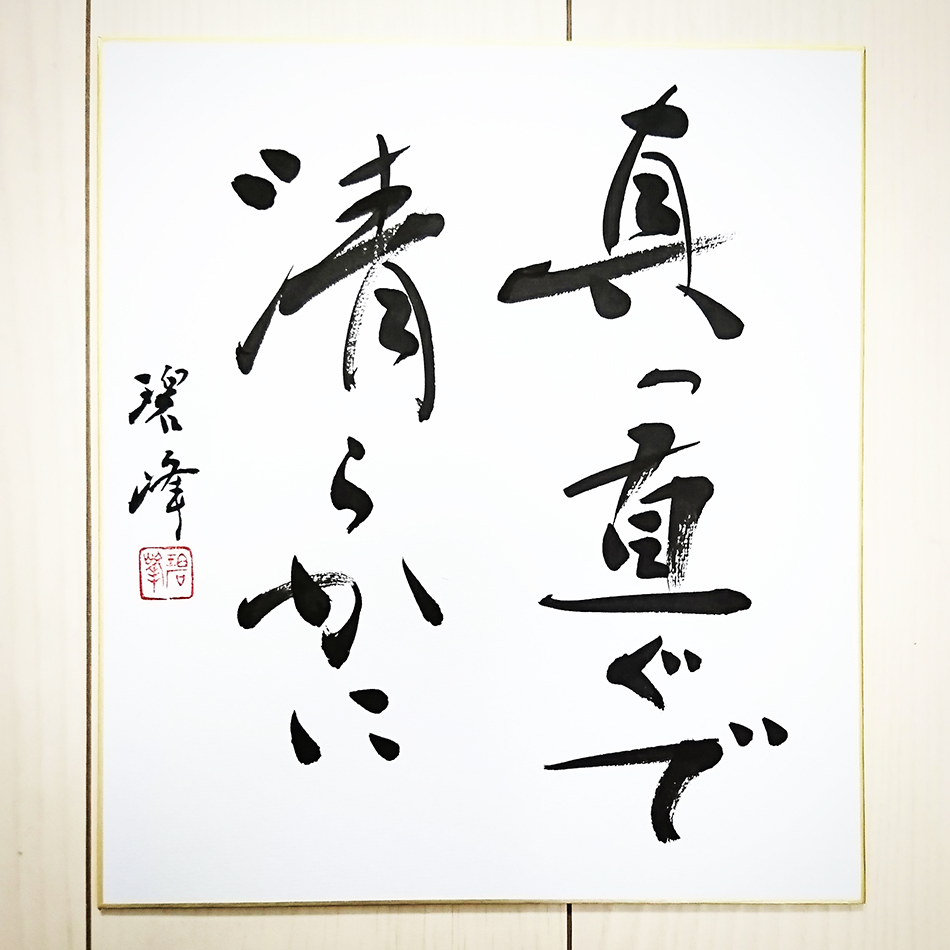 真っ直ぐで
清らかに
碧峰
碧峰